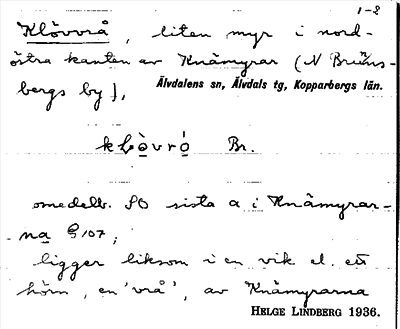 1-2
Klövvrå, liten myr i nord-
östra kanten av Knämyrar (N Bruns-
bergs by),
Älvdalens sn, Älvdals tg, Kopparbergs län.
Br.
omedelb. SO sista a i Knämyrar-
na G107;
ligger liksom i en vik el. ett
hörn, en 'vrå', av Knämyrarna
HELGE LINDBERG 1936.